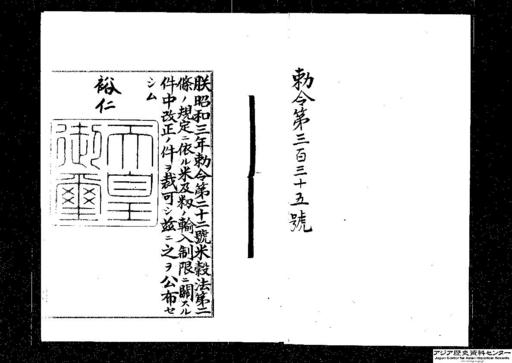 勅令第三百三十五號
朕昭和三年勅令第二十二號米穀法第二
條ノ規定ニ依ル米及籾ノ輸入制限ニ關スル
件中改正ノ件ヲ裁可シ茲ニ之ヲ公布セ
シム
裕仁
天皇
御璽
アジア歴史資料センター
Japan Center for Asian Historical Records